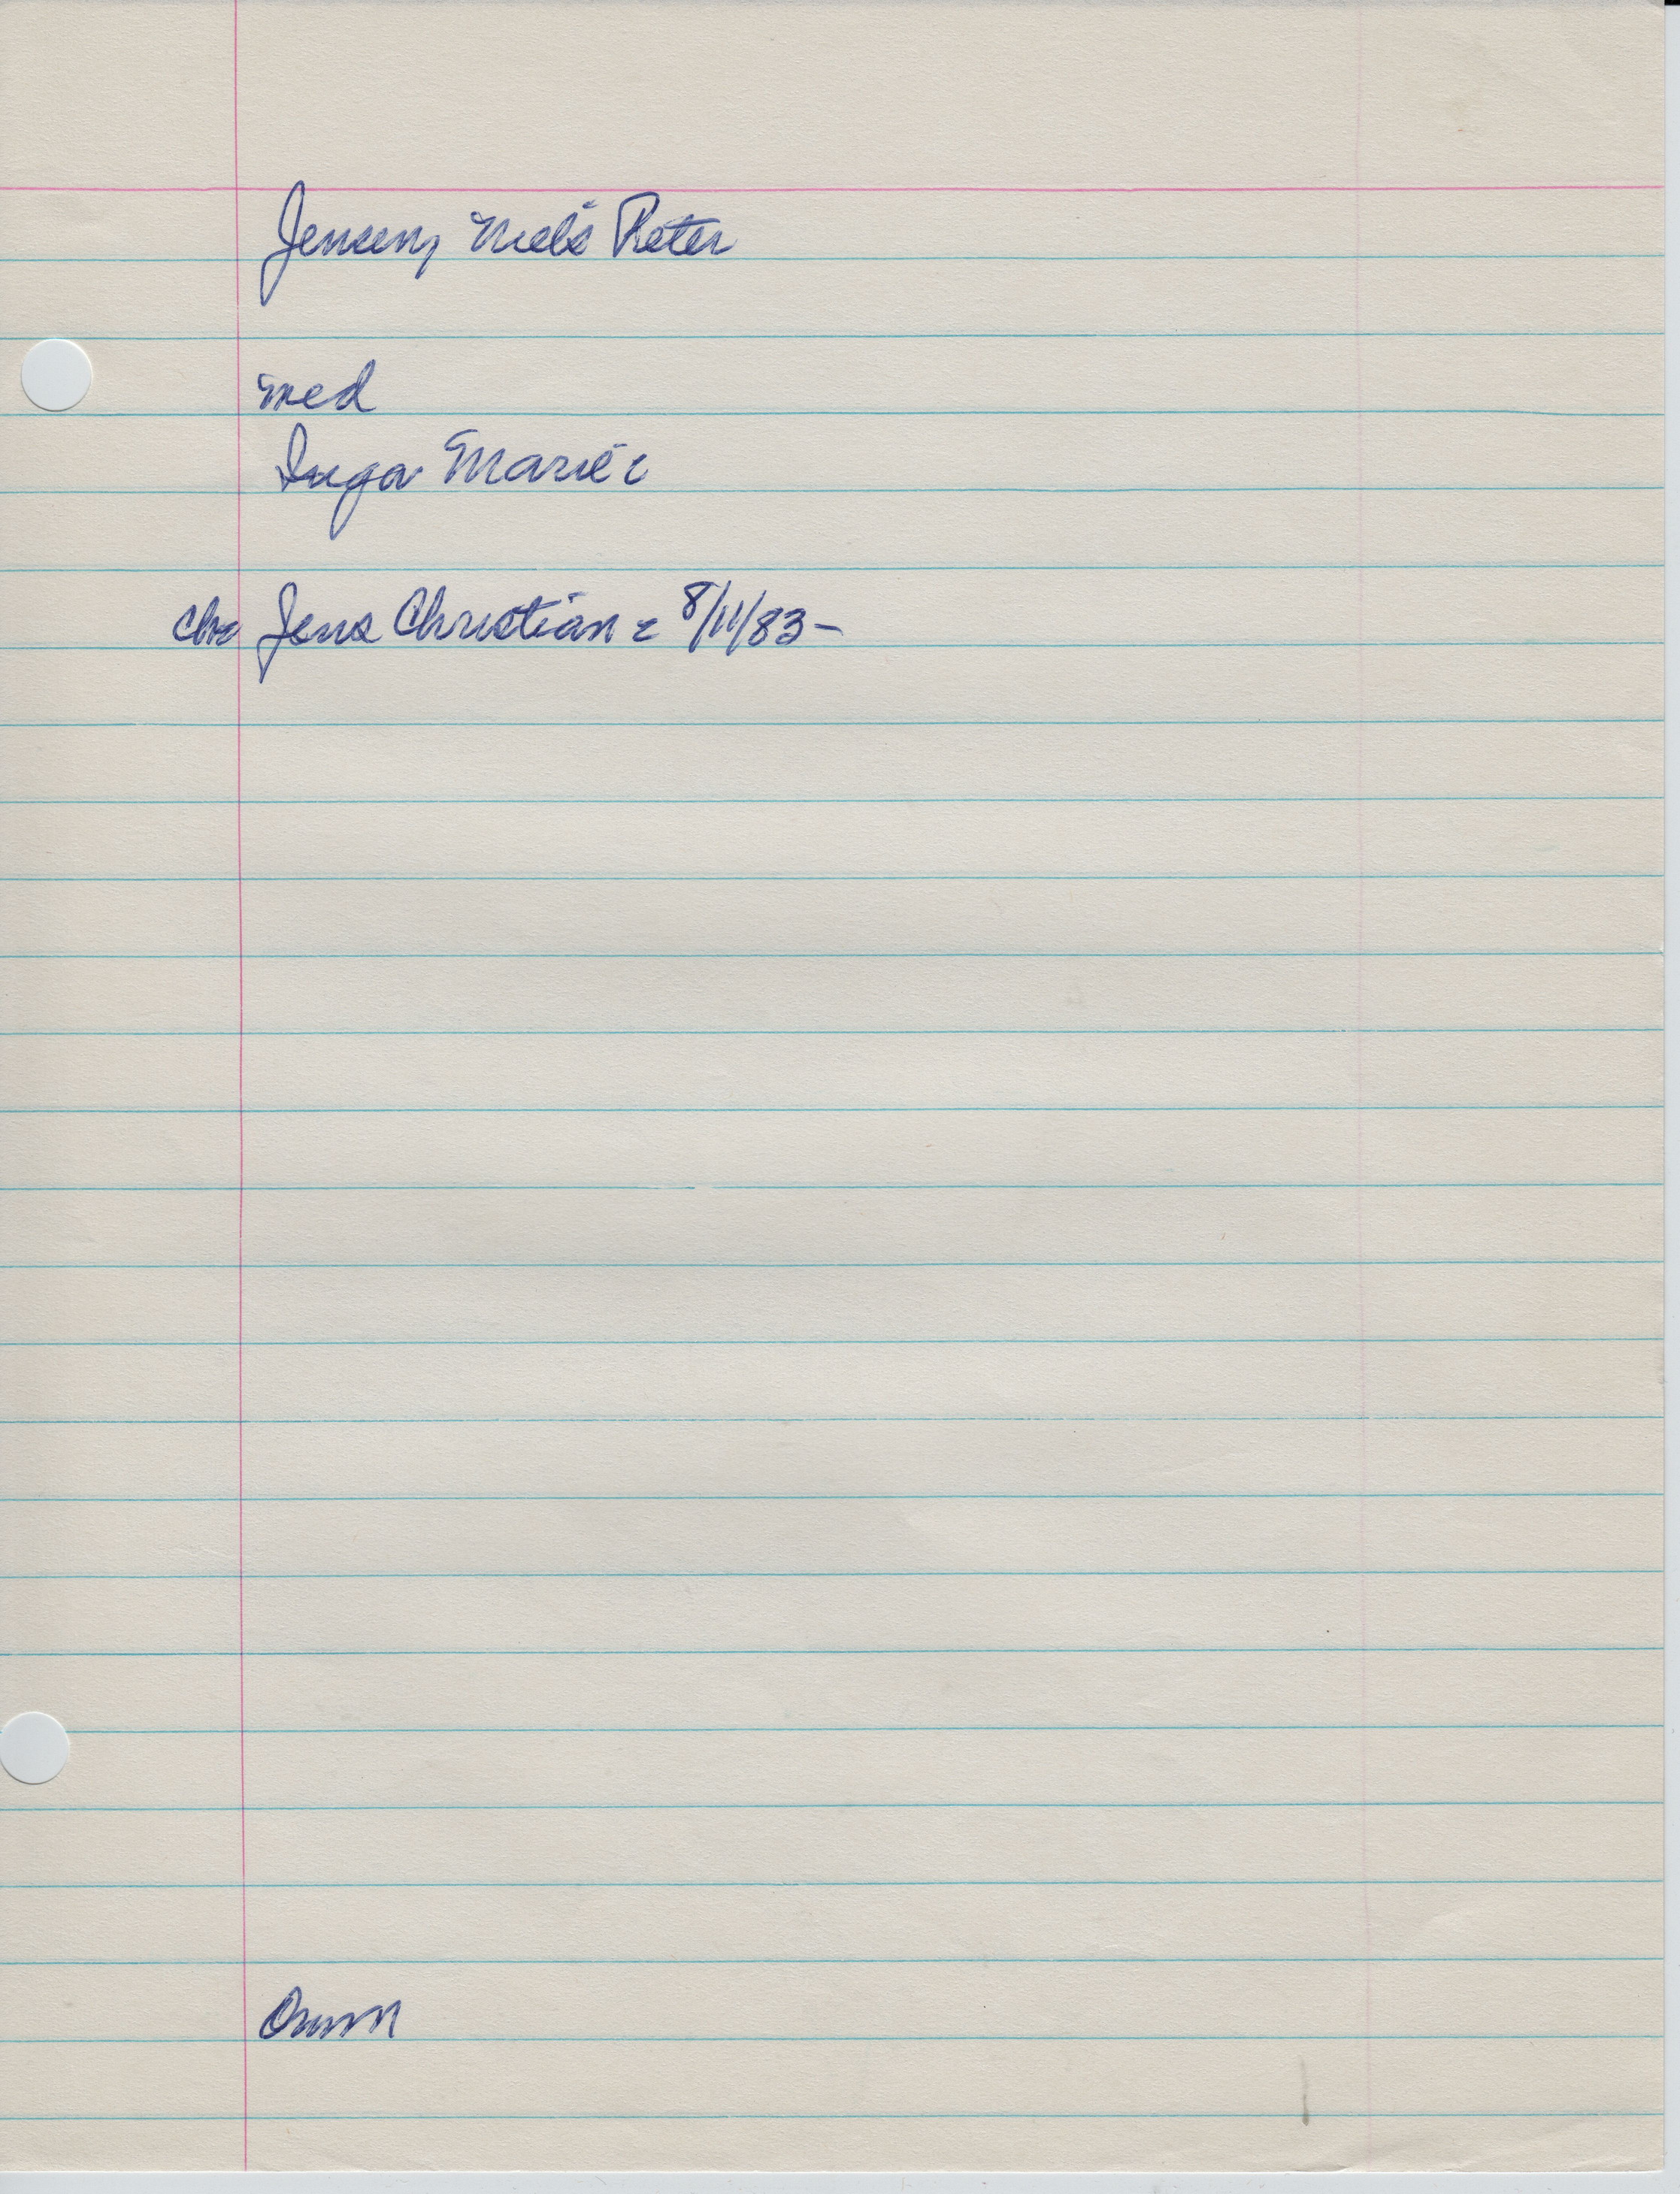 Jensen, Niels Peter
med
Inga Marie =
Jens Christian = 8/11/83 -